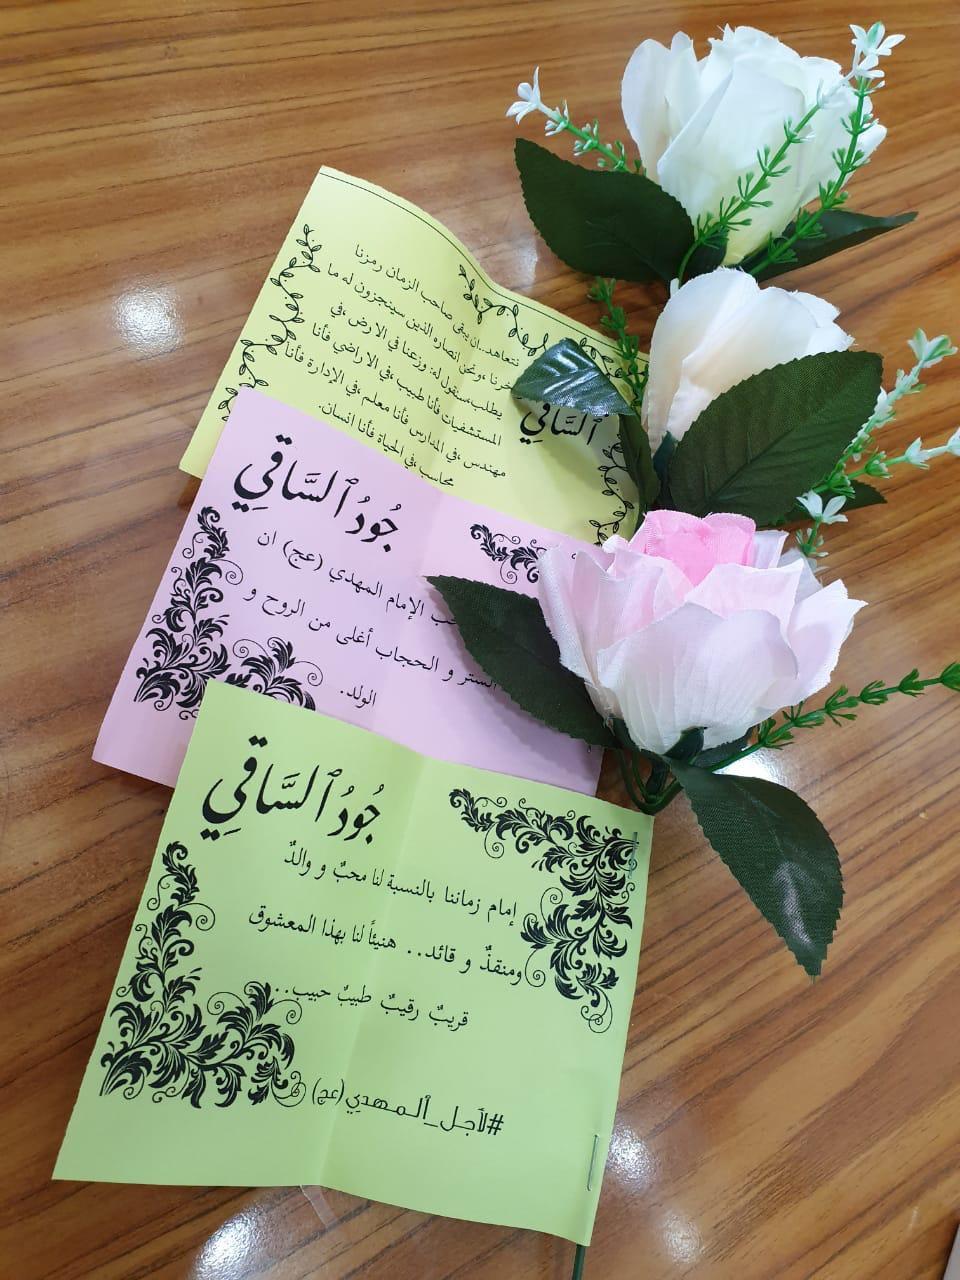 نتعاهد..ان يبقى صاحب الزمان رمزنا
خرنا ،ونحن انصاره الذين سينجزون له ما
يطلب،سنقول له: وزعنا في الارض ،في
المستشفيات فأنا طبيب ،في الاراضي فأنا
مهندس ،في المدارس فأنا معلم ،في الإدارة فأنا
محاسب ،في الحياة فأنا انسان.
ٱلسَّاقِي
جُودُ ٱلسَّاقِي
الإمام المهدي (عج) ان
الستر و الحجاب أغلى من الروح و
الولد.
جُودُ ٱلسَّاقِي
إمام زماننا بالنسبة لنا محبٌ و والدٌ
ومنقذٌ و قائد.. هنيئاً لنا بهذا المعشوق
قريبٌ رقيبٌ طبيبٌ حبيب..
#لأجل_ٱلمهدي(عج)